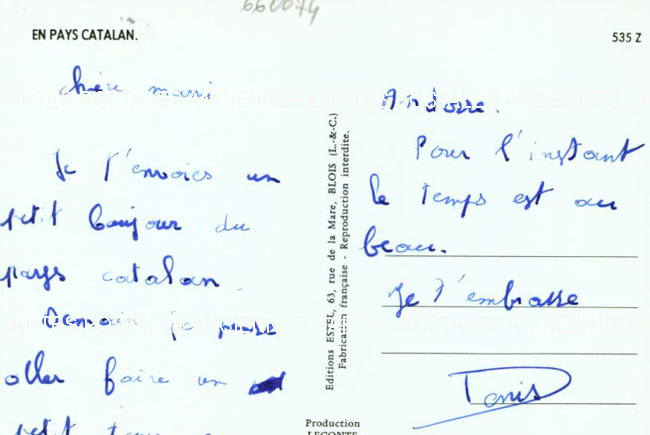 660074
EN PAYS CATALAN.
535 Z
chère mami
Je t'envoies un
petit bonjour du
pays catalan.
Demain je pense
aller faire un
petit
Andorre.
Pour l'instant
le temps est au
beau.
Je t'embrasse
Editions ESTEL, 63, rue de la Mare, BLOIS (L.-&-C.)
Fabrication française - Reproduction interdite.
Production
LECONTE
CARTES POSTALES ANCIENNES